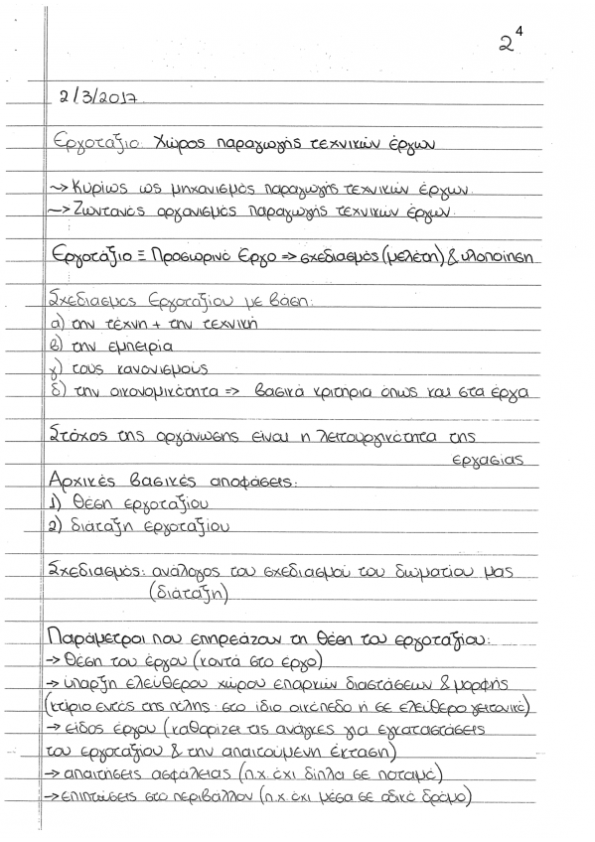 2⁴
2/3/2017
Εργοτάξιο: Χώρος παραγωγής τεχνικών έργων
~> Κυρίως ως μηχανισμός παραγωγής τεχνικών έργων
~> Ζωντανός οργανισμός παραγωγής τεχνικών έργων
Εργοτάξιο ≡ Προσωρινό Έργο => σχεδιασμός (μελέτη) & υλοποίηση
Σχεδιασμός Εργοταξίου με βάση:
α) την τέχνη + την τεχνική
β) την εμπειρία
γ) τους κανονισμούς
δ) την οικονομικότητα => βασικά κριτήρια όπως και στα έργα
Στόχος της οργάνωσης είναι η λειτουργικότητα της
εργασίας
Αρχικές βασικές αποφάσεις:
1) θέση εργοταξίου
2) διάταξη εργοταξίου
Σχεδιασμός: ανάλογος του σχεδιασμού του δωματίου μας
(διάταξη)
Παράμετροι που επηρεάζουν τη θέση του εργοταξίου:
→ θέση του έργου (κοντά στο έργο)
→ ύπαρξη ελεύθερου χώρου επαρκών διαστάσεων & μορφής
(κτίριο εντός της πόλης: στο ίδιο οικόπεδο ή σε ελεύθερο γειτονικό)
→ είδος έργου (καθορίζει τις ανάγκες για εγκαταστάσεις
του εργοταξίου & την απαιτούμενη έκταση)
→ απαιτήσεις ασφάλειας (π.χ. όχι δίπλα σε ποταμό)
→ επιπτώσεις στο περιβάλλον (π.χ. όχι μέσα σε οδικό δρόμο)